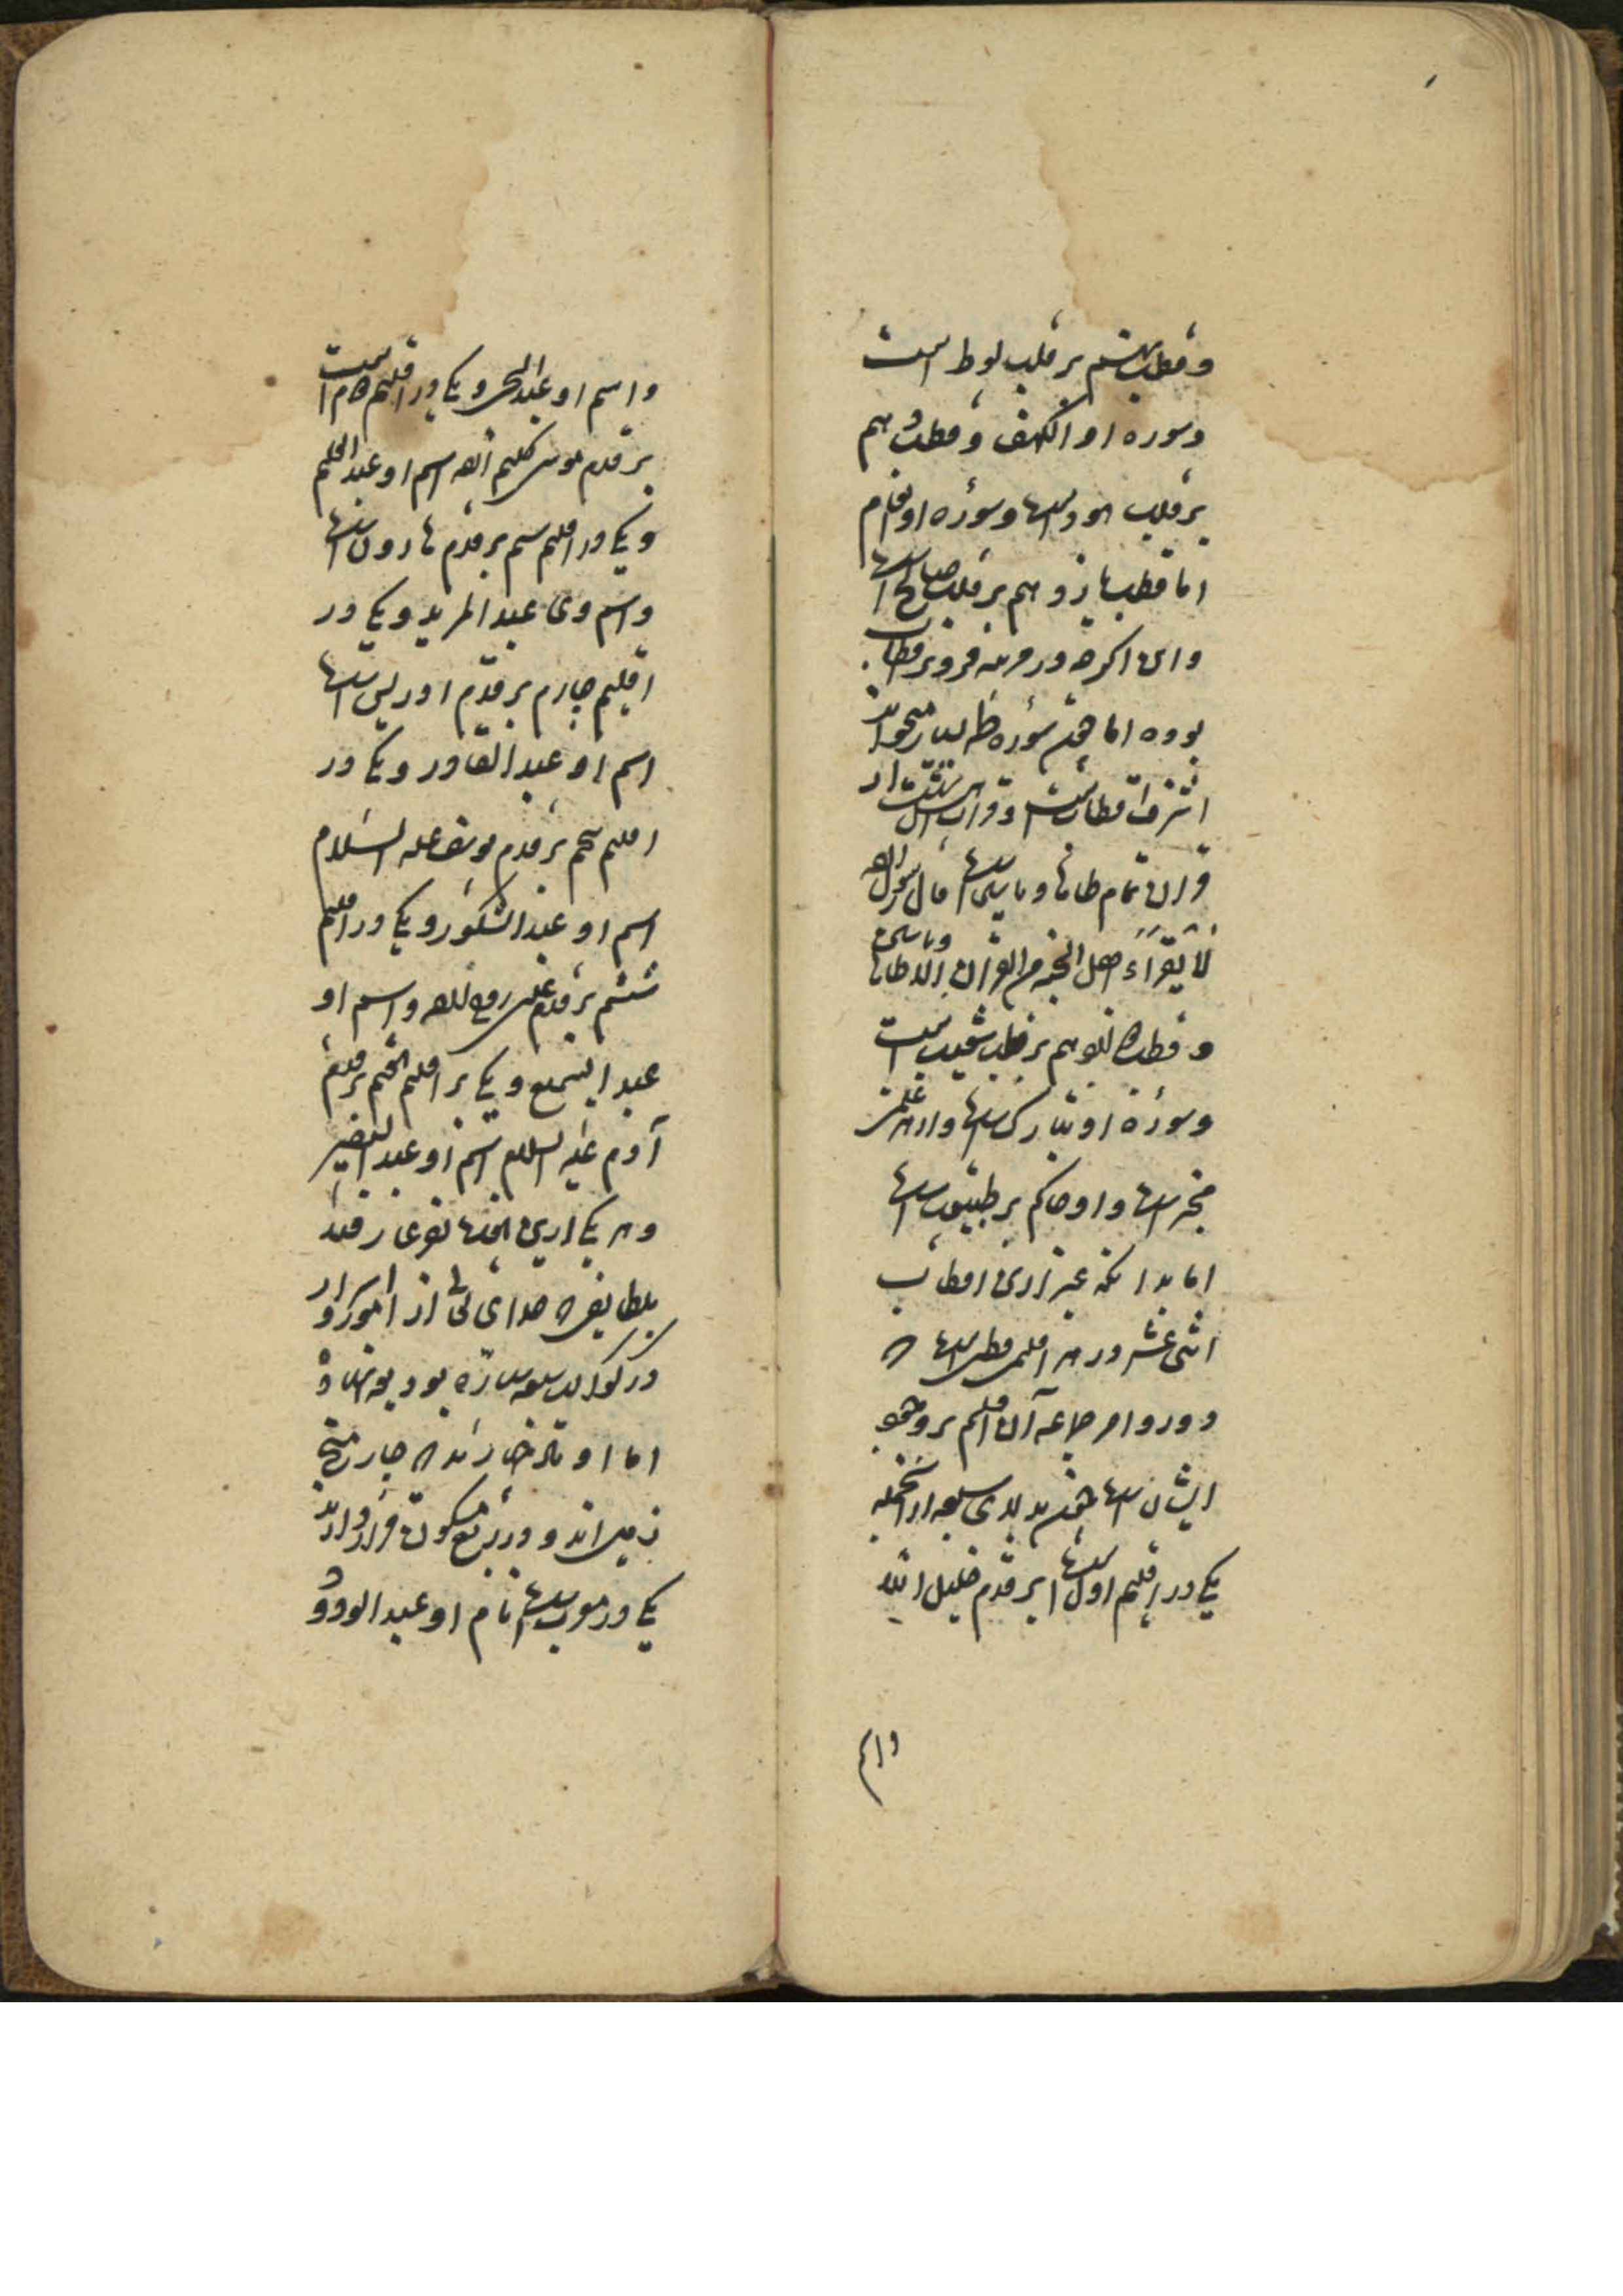 و قطب نهم بر قلب لوط است
وسوره او الکهف و قطب دهم
بر قلب هود است وسوره او انعام
اما قطب یازدهم بر قلب صالح است
واین اگرچه در مرتبه فروتر قطاب
بوده اما همه سوره طه بسیار میخواند
اشرف اقطابست
قران تمام طاها ویاسین است قال رسول الله
لا یقراء اهل الجنه من القران الا طاها ویاسین
و قطب دوازدهم بر قلب شعیب است
وسورۀ او تبارک است واز هر علمش
مخبر است و او حاکم بر طبیعت است
اما بدانکه غیر ازین اقطاب
اثنی عشر در هر اقلیمی قطبی است که
دور وامر جماعه آن اقلیم بر وجهه
ایشان است همه بدلای سبعه از انجمله
یکی در اقلیم اول است بر قدم خلیل الله
واسم
واسم او عبدالحی و یکی در اقلیم دوم است
بر قدم موسی کلیم الله اسم او عبد العلیم
ویکی در اقلیم سیم بر قدم هارون است
واسم وی عبد المرید ویکی در
اقلیم چارم بر قدم ادریس است
اسم او عبد القادر ویکی در
اقلیم پنجم بر قدم یوسف علیه السلام
اسم او عبد الشکور ویکی در اقلیم
ششم بر قدم عیسی روح الله واسم او
عبد السمیع ویکی بر اقلیم هفتم بر قدم
آدم علیه السلام اسم او عبد البصیر
و هر یکی ازین
بلطایفی که خدای تعالی از امور و اسرار
در کواکب سبعه سیاره بودیعه نهاده
اما اوتاد چهارند که چار میخ
زمین اند و در ربع مسکون قرار دارند
یکی در مغرب است نام او عبد الودود